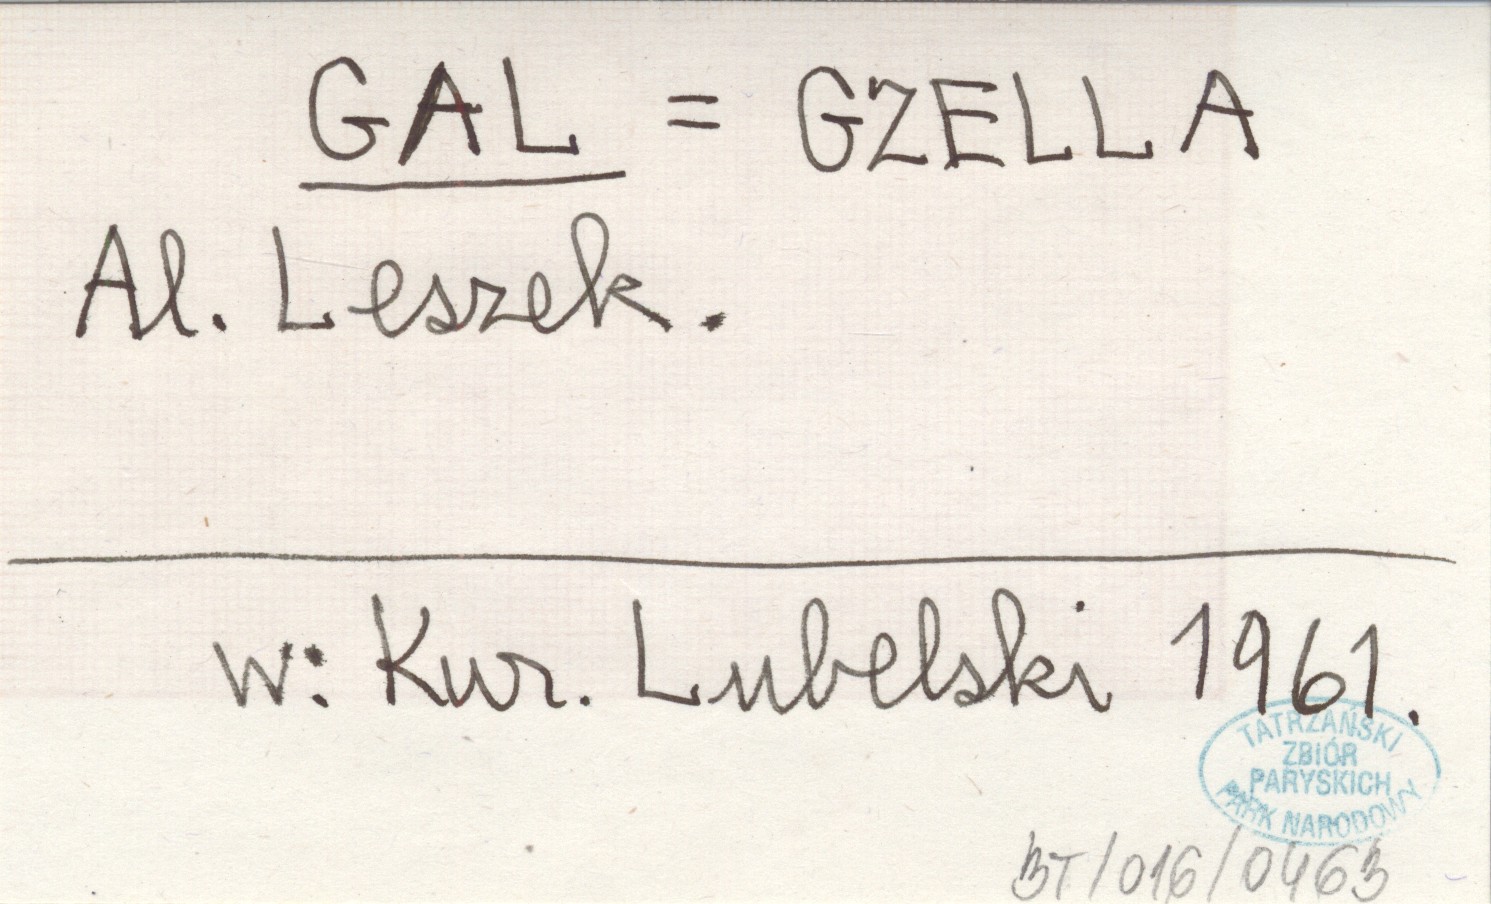 GAL = GZELLA
Al. Leszek.
w: Kur. Lubelski 1961.
TATRZAŃSKI
ZBIÓR
PARYSKICH
PARK NARODOWY
BT/016/0463